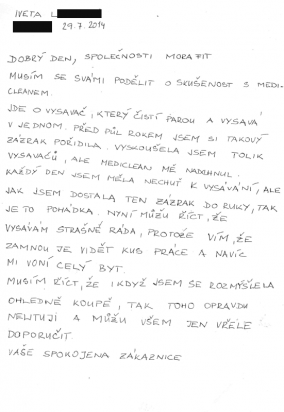 IVETA L
29.7.2014
DOBRÝ DEN, SPOLEČNOSTI MORAFIT
MUSÍM SE SVÁMI PODĚLIT O SKUŠENOST S MEDI-
CLEANEM.
JDE O VYSAVAČ, KTERÝ ČISTÍ PAROU A VYSÁVÁ
V JEDNOM. PŘED PŮL ROKEM JSEM SI TAKOVÝ
ZÁZRAK POŘÍDILA. VYSKOUŠELA JSEM TOLIK
VYSAVAČŮ, ALE MEDICLEAN MĚ NADCHNUL.
KAŽDÝ DEN JSEM MĚLA NECHUŤ K VYSÁVÁNÍ, ALE
JAK JSEM DOSTALA TEN ZÁZRAK DO RUKY, TAK
JE TO POHÁDKA. NYNÍ MŮŽU ŘÍCT, ŽE
VYSÁVÁM STRAŠNĚ RÁDA, PROTOŽE VÍM, ŽE
ZAMNOU JE VIDĚT KUS PRÁCE A NAVÍC
MI VONÍ CELÝ BYT.
MUSÍM ŘÍCT, ŽE I KDYŽ JSEM SE ROZMÝŠLELA
OHLEDNĚ KOUPĚ, TAK TOHO OPRAVDU
NELITUJI A MŮŽU VŠEM JEN VŘELE
DOPORUČIT.
VAŠE SPOKOJENA ZÁKAZNICE